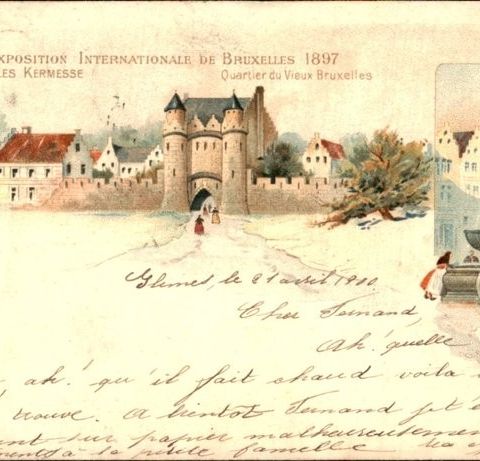 XPOSITION INTERNATIONALE DE BRUXELLES 1897
LES KERMESSE
Quartier du Vieux Bruxelles
Glimes, le 21 avril 1900.
Cher Fernand,
Ah! quelle
ah! qu'il fait chaud voila
trouve. A bientôt Fernand je t'é
ent sur papier malheureusement
à la petite famelle